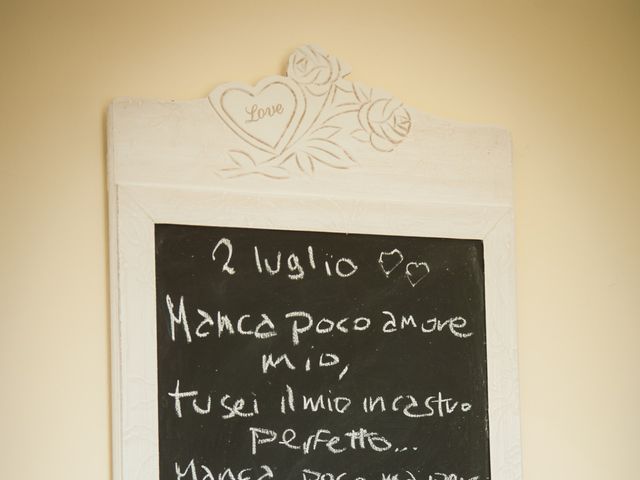 Love
2 luglio
Manca poco amore
mio,
tu sei il mio incastro
perfetto...
Manca poco ma